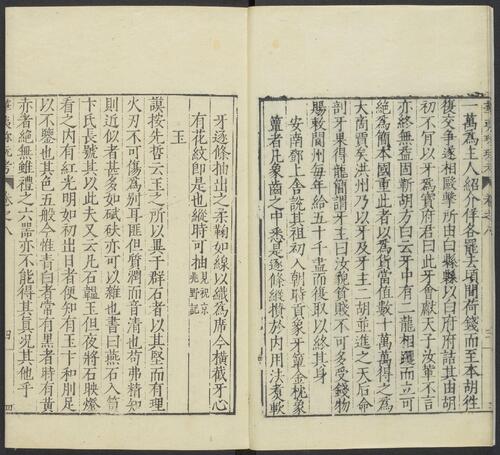 一萬為主人紹介伴各罷去頃間荷錢而至本胡徃
復交爭遂相毆擊所由白縣縣以白府府詰其由胡
初不肯以牙為寶府君曰此牙會獻天子汝軰不言
亦終無益固靳胡方白云牙中有二龍相躩而立可
絶為簡本國重此者以為貨當值數十萬萬得之為
大啇賈矣洪州乃以牙及牙主二胡並進之天后命
剖牙果得龍簡謂牙主曰汝貌貧賤不可多受錢物
賜敕閬州每年給五十千盡而復取以終其身
安南鄧上舍說其祖初入朝時貢象牙簟金枕象
簟者凡象齒之中悉是逐條縱攅於内用法煑軟
牙逐條抽出之柔鞠如線以織為席今橫截牙心
有花紋即是也縱時可抽見祝京兆野記
玉
謨按先哲云玉之所以異于群石者以其堅而有理
火刃不可傷為别耳匪但質潤而音清也苟弗精知
則近似者甚多如碔砆亦可以雜也書曰燕石入笥
卞氏長號其以此夫又云凡石韞玉但夜將石映燈
看之内有紅光明如初出日者便知有玉卞和刖足
以不鑒也其色五般今惟青白者常有黑者時有黄
亦者絶無雖禮之六噐亦不能得其真况其他乎
卷之八
四